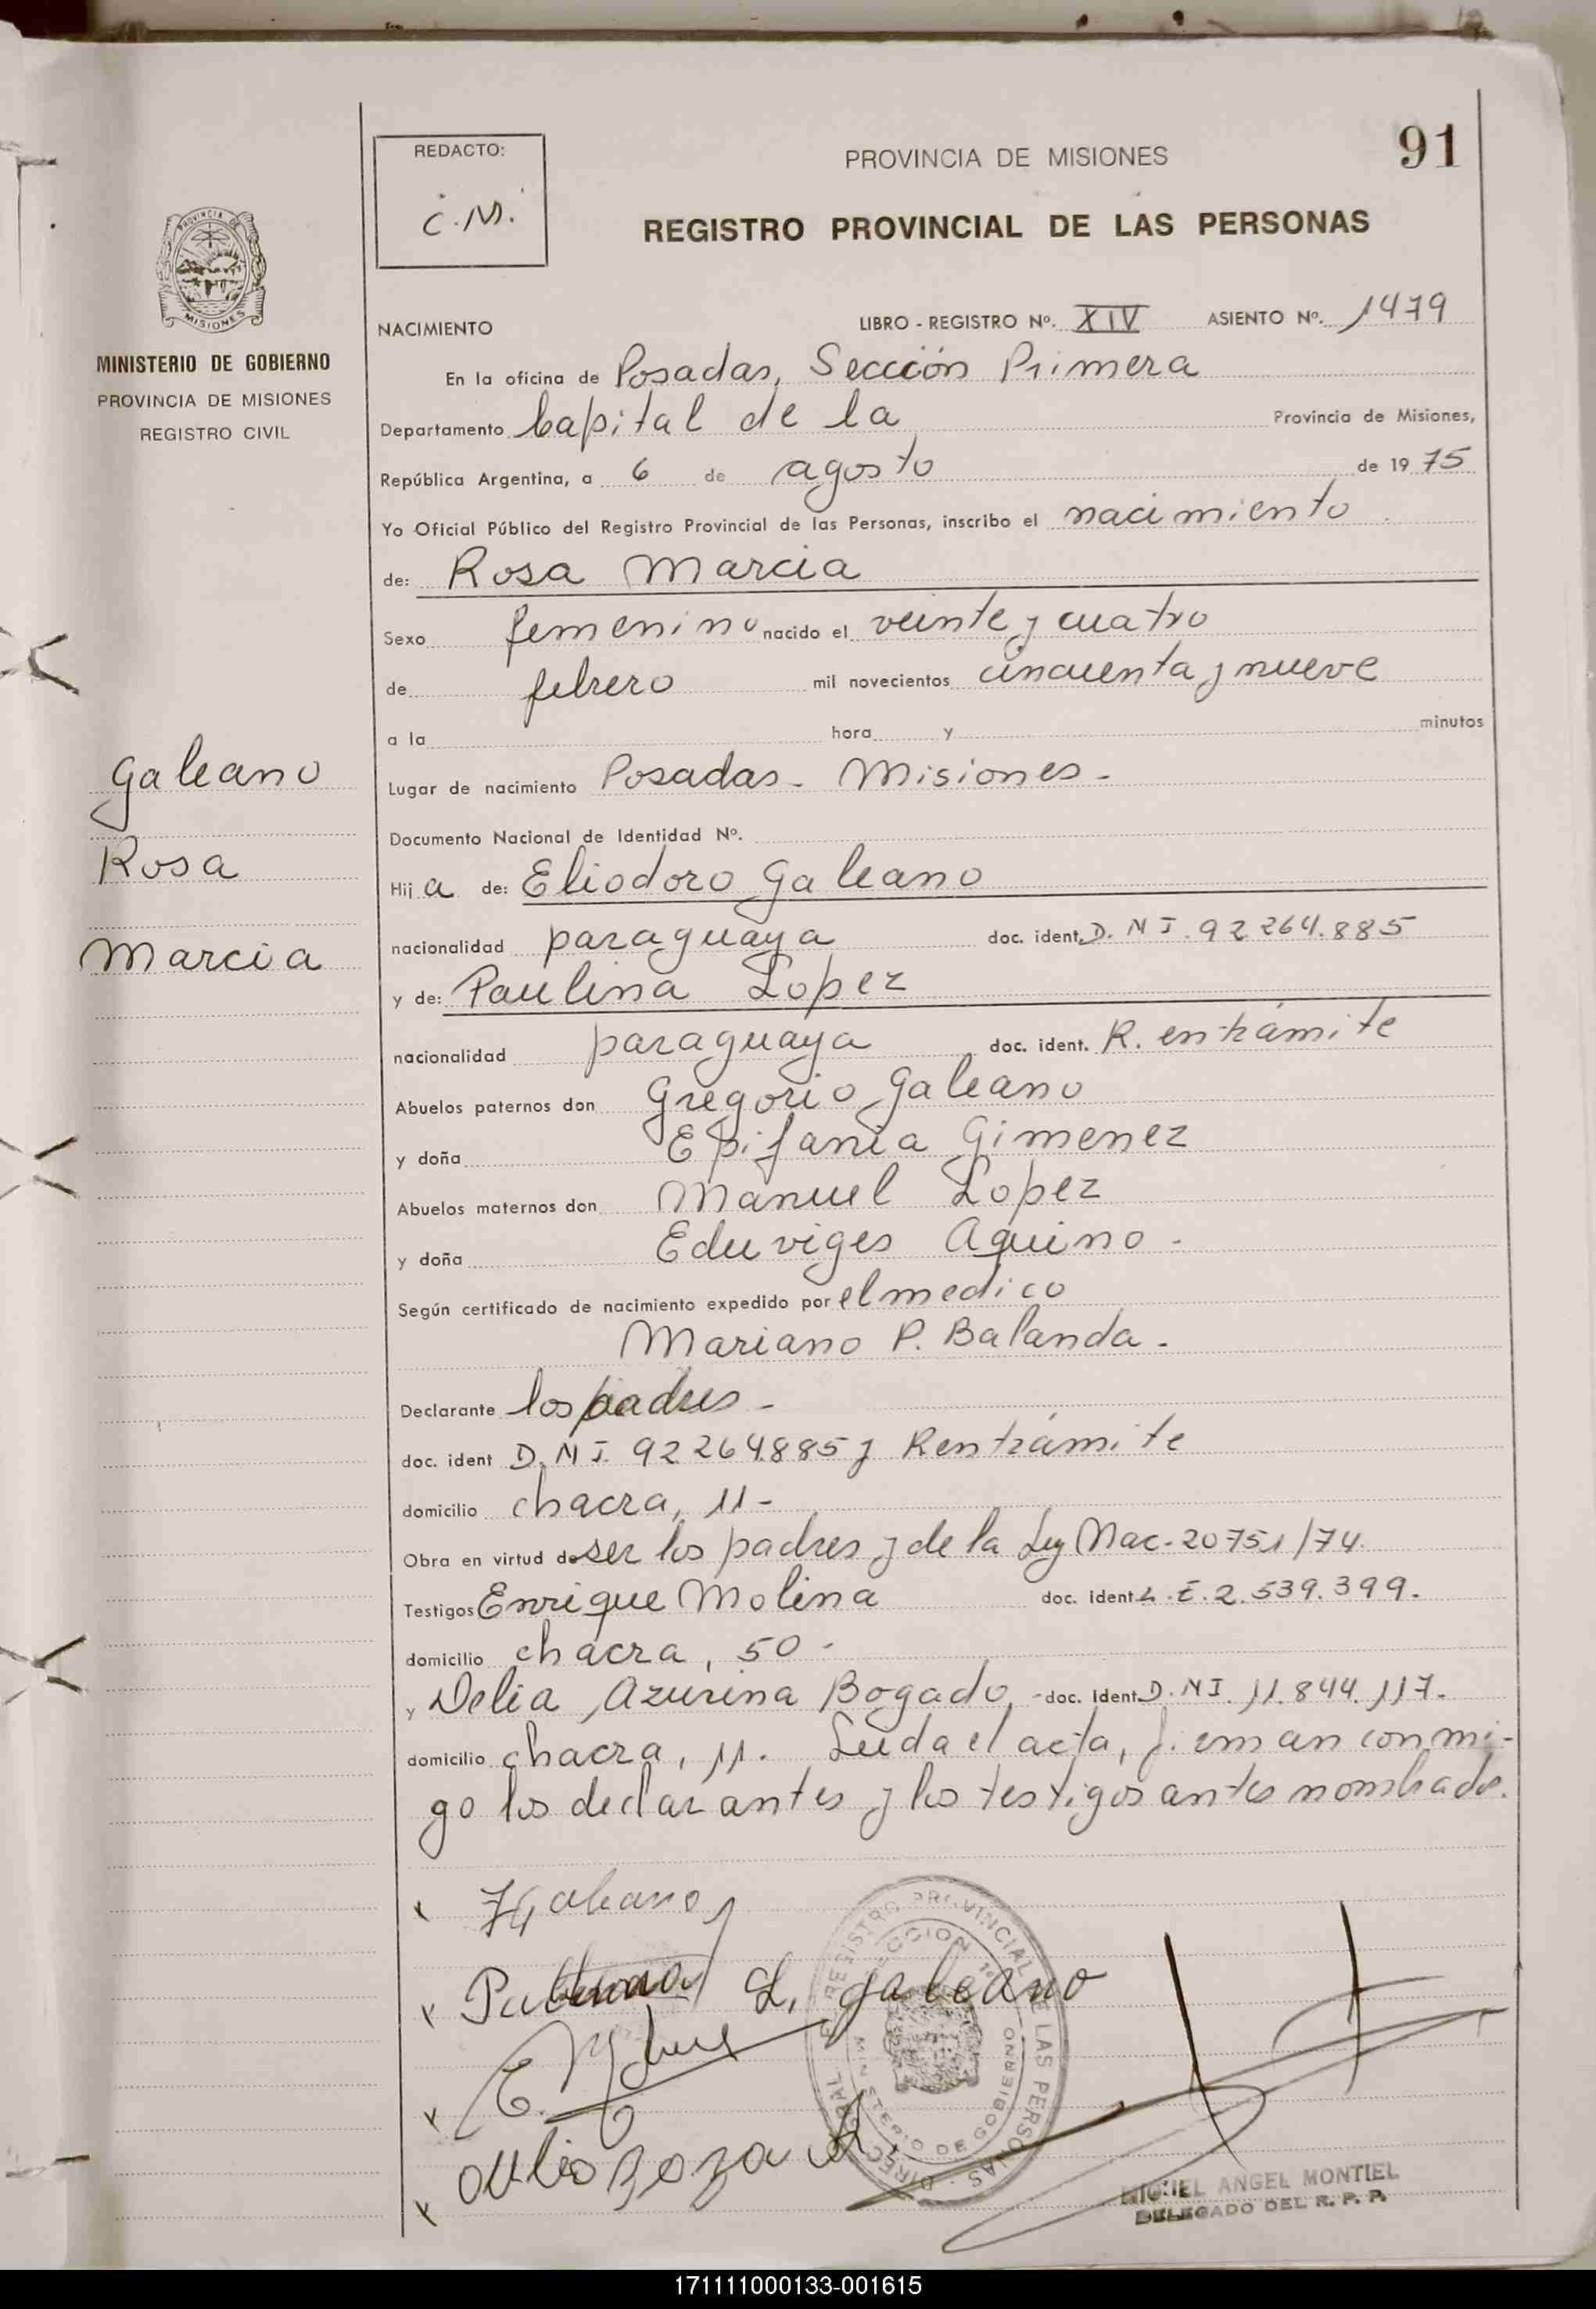 91
REDACTO:
C.M.
PROVINCIA DE MISIONES
REGISTRO PROVINCIAL DE LAS PERSONAS
PROVINCIA DE MISIONES
MINISTERIO DE GOBIERNO
PROVINCIA DE MISIONES
REGISTRO CIVIL
NACIMIENTO LIBRO - REGISTRO Nº. XIV ASIENTO Nº. 1479
En la oficina de Posadas, Sección Primera
Departamento Capital de la Provincia de Misiones,
República Argentina, a 6 de agosto de 1975
Yo Oficial Público del Registro Provincial de las Personas, inscribo el nacimiento
de: Rosa Marcia
Sexo femenino nacido el veinte y cuatro
de febrero mil novecientos cincuenta y nueve
a la hora y minutos
Galeano
Rosa
Marcia
Lugar de nacimiento Posadas - Misiones -
Documento Nacional de Identidad Nº.
Hij a de: Eliodoro Galeano
nacionalidad paraguaya doc. ident. D. N I. 92 264.885
y de: Paulina Lopez
nacionalidad paraguaya doc. ident. R. entrámite
Abuelos paternos don Gregorio Galeano
y doña Epifania Gimenez
Abuelos maternos don Manuel Lopez
y doña Eduviges Aquino -
Según certificado de nacimiento expedido por el medico
Mariano P. Balanda -
Declarante los padres -
doc. ident D. N I. 92 264.885 y R entrámite
domicilio chacra, 11 -
Obra en virtud de ser los padres y de la Ley Nac. 20751/74.
Testigos Enrique Molina doc. ident L. E. 2.539.399.
domicilio chacra, 50 -
y Delia Azurina Bogado - doc. Ident. D. N I. 11.844.117.
domicilio chacra, 11. Leida el acta, firman conmi-
go los declarantes y los testigos antes nombrados.
L. galeano
DIRECC GRAL REGISTRO PROVINCIAL DE LAS PERSONAS
SECCION 1a
MINISTERIO DE GOBIERNO
MIGUEL ANGEL MONTIEL
DELEGADO DEL R. P. P.
171111000133-001615